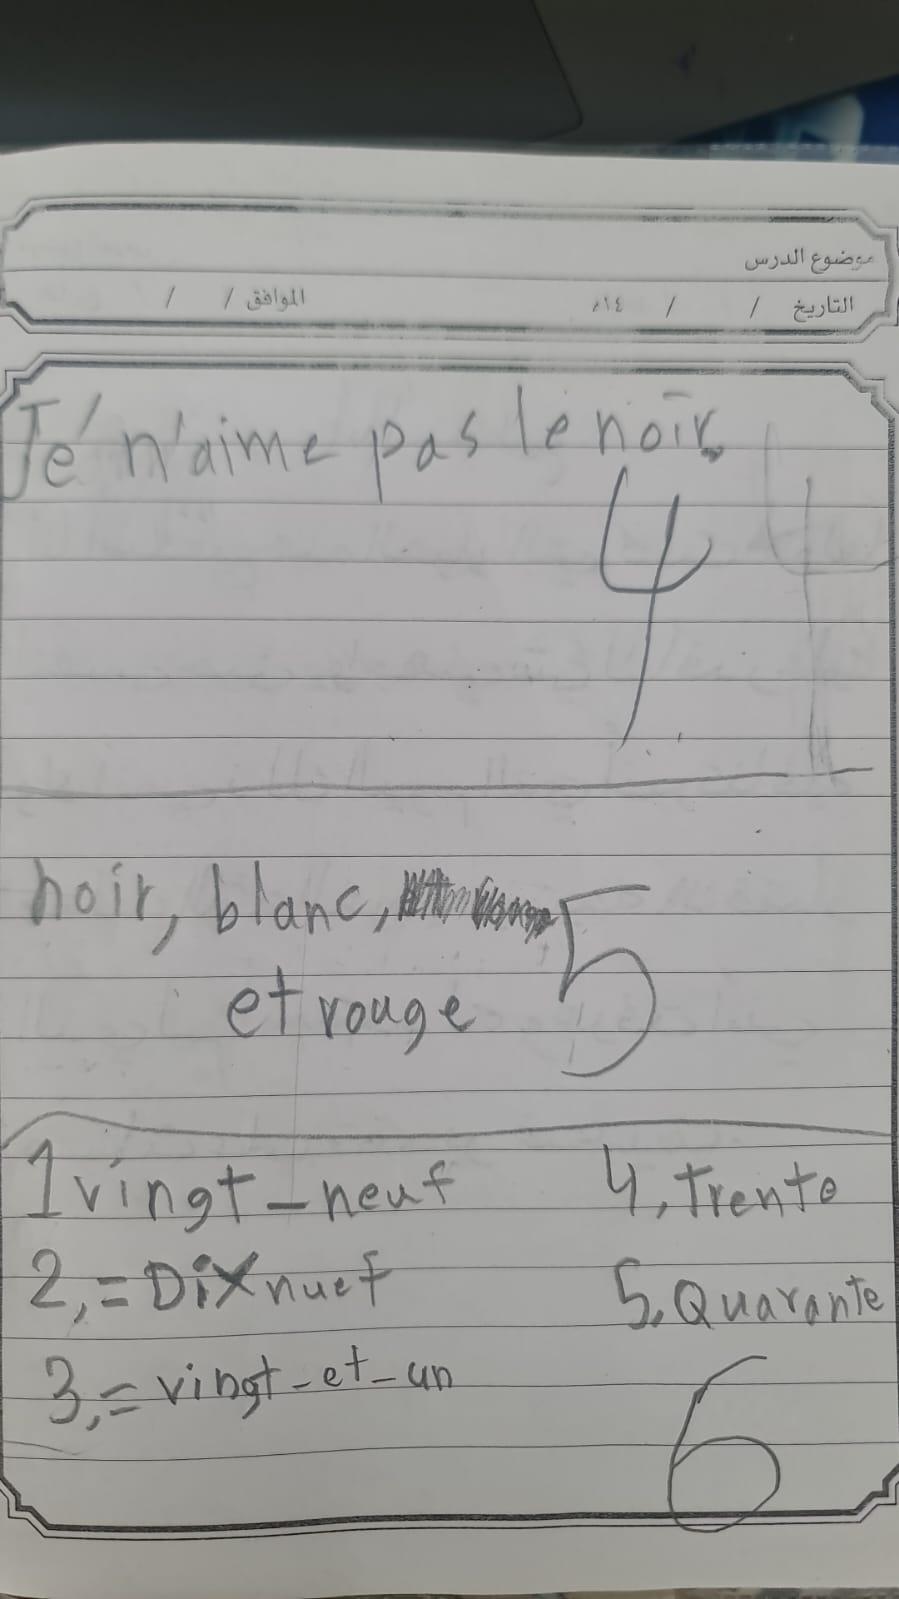 موضوع الدرس
التاريخ / / ١٤هـ الموافق / /
Jé n'aime pas le noir.
4 4
noir, blanc,
et rouge 5
1 vingt-neuf
2,= Dix nuef
3,= vingt-et-un
4, Trente
5, Quarante
6